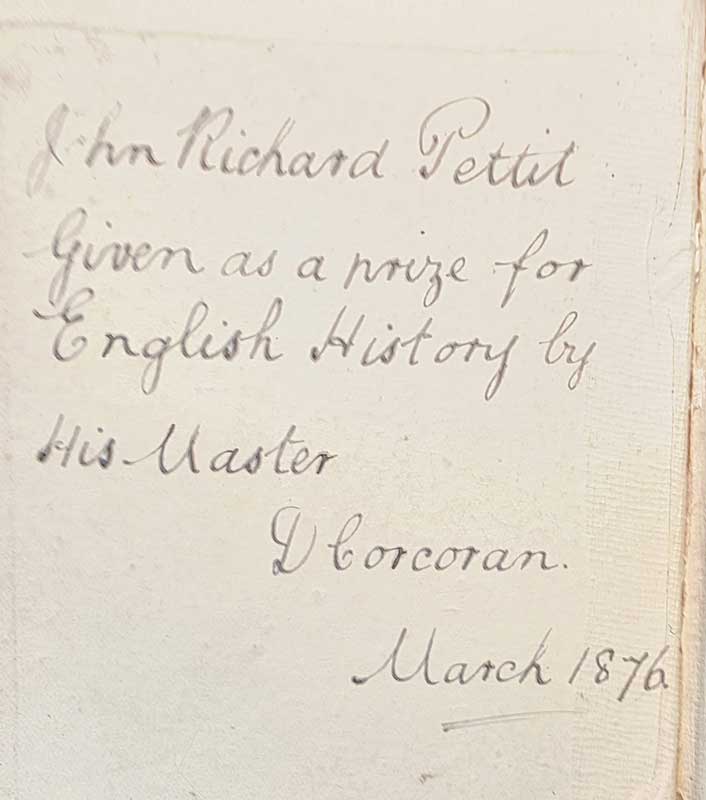 John Richard Pettit
Given as a prize for
English History by
His Master
D Corcoran.
March 1876.